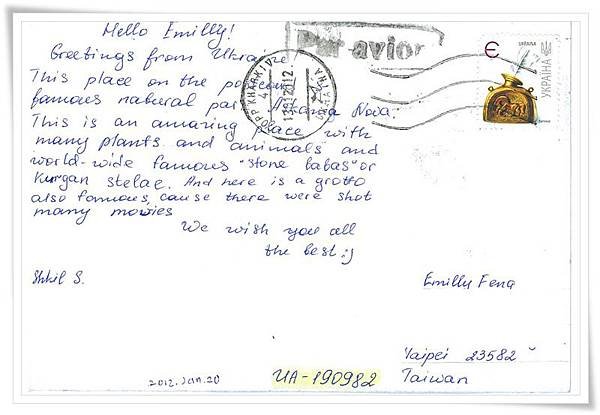 Hello Emilly!
Greetings from Ukraine
This place on the
famous natural Askania Nova.
This is an amazing place with
many plants and animals and
world-wide famous "stone babas" or
Kurgan stelae. And here is a grotto
also famous, cause there were shot
many movies
We wish you all
the best :)
Shkil S.
2012.Jan.20
UA-190982
KHARKIV
Par avion
Є
УКРАЇНА
Emilly Feng
Taipei 23582
Taiwan